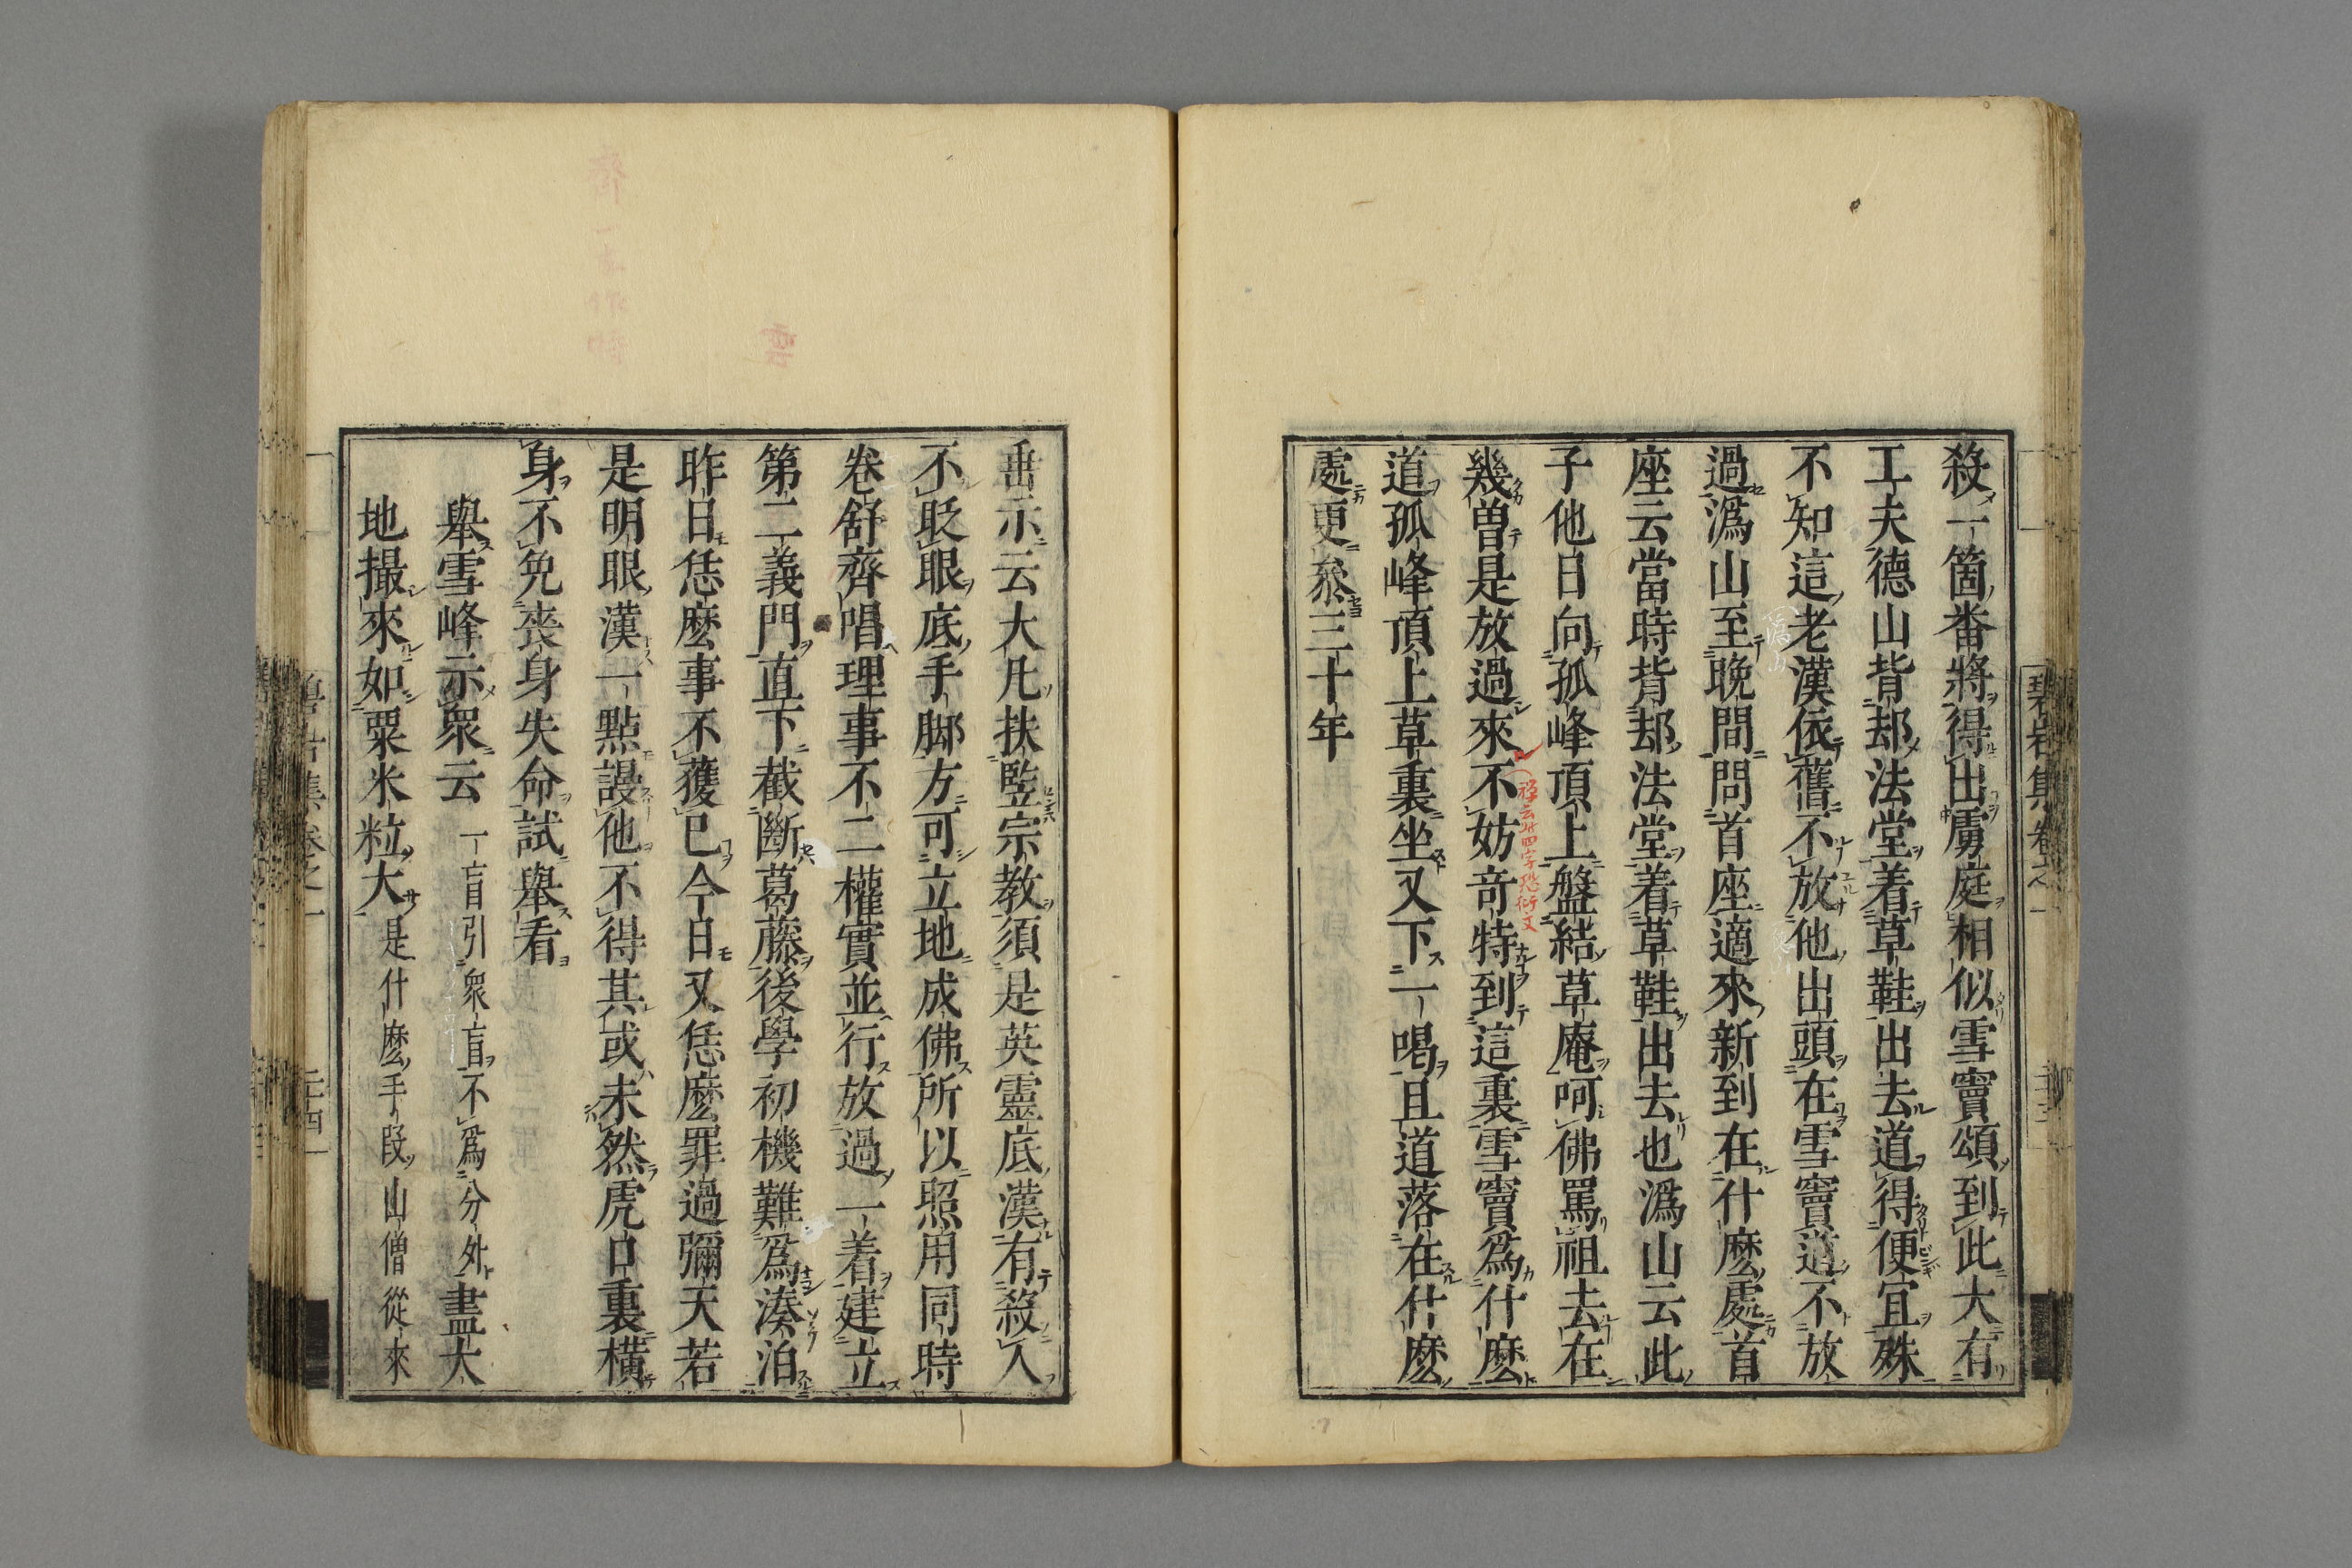 殺一箇番將得出虜庭相似雪竇頌到此大有
工夫德山背却法堂着草鞋出去道得便宜殊
不知這老漢依舊不放他出頭在雪竇道不放
過溈山至晚間問首座適來新到在什麼處首
座云當時背却法堂着草鞋出去也溈山云此
子他日向孤峰頂上盤結草庵呵佛罵祖去在
幾曾是放過來不妨奇特到這裏雪竇為什麼
道孤峰頂上草裏坐又下一喝且道落在什麼
處更叅三十年
碧岩集卷之一
垂示云大凡扶竪宗教須是英靈底漢有殺人
不眨眼底手脚方可立地成佛所以照用同時
卷舒齊唱理事不二權實並行放過一着建立
第二義門直下截斷葛藤後學初機難為湊泊
昨日恁麼事不獲已今日又恁麼罪過彌天若
是明眼漢一點謾他不得其或未然虎口裏橫
身不免喪身失命試舉看
舉雪峰示眾云一盲引衆盲不爲分外盡大
地撮來如粟米粒大是什麼手段山僧從來